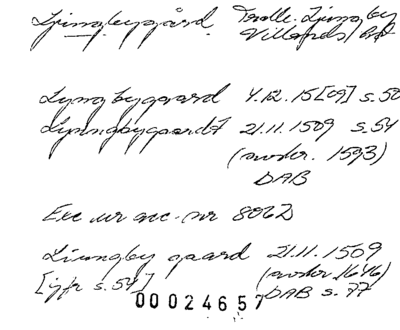 Ljungbygård. Tralle-Ljungby
Villands hd
Lyngbygaard 4.12.15[09] s.50
Lyungbygaardt 21.11.1509 s.54
(avskr. 1593)
DAB
Exc ur acc.nr 8062
Liungby gaard 21.11.1509
[jfr s.54] (avskr 1646)
DAB s.77
00024657